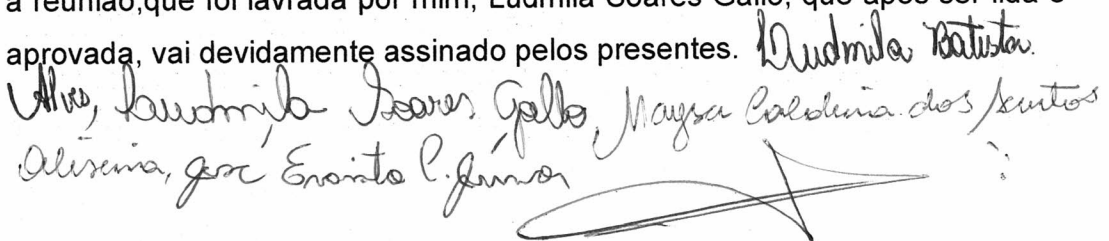 a reunião,que foi lavrada por mim, Ludmila Soares Gallo, que após ser lida e
aprovada, vai devidamente assinado pelos presentes. Ludmila Batista
Alves, Ludmila Soares Gallo, Maysa Caldeira dos Santos
Oliveira, José Evaristo C. Júnior